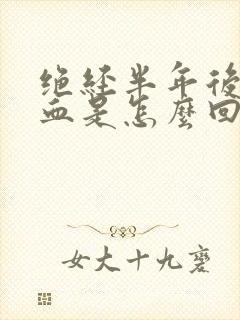 绝经半年後
血是怎麼回
女大十九變